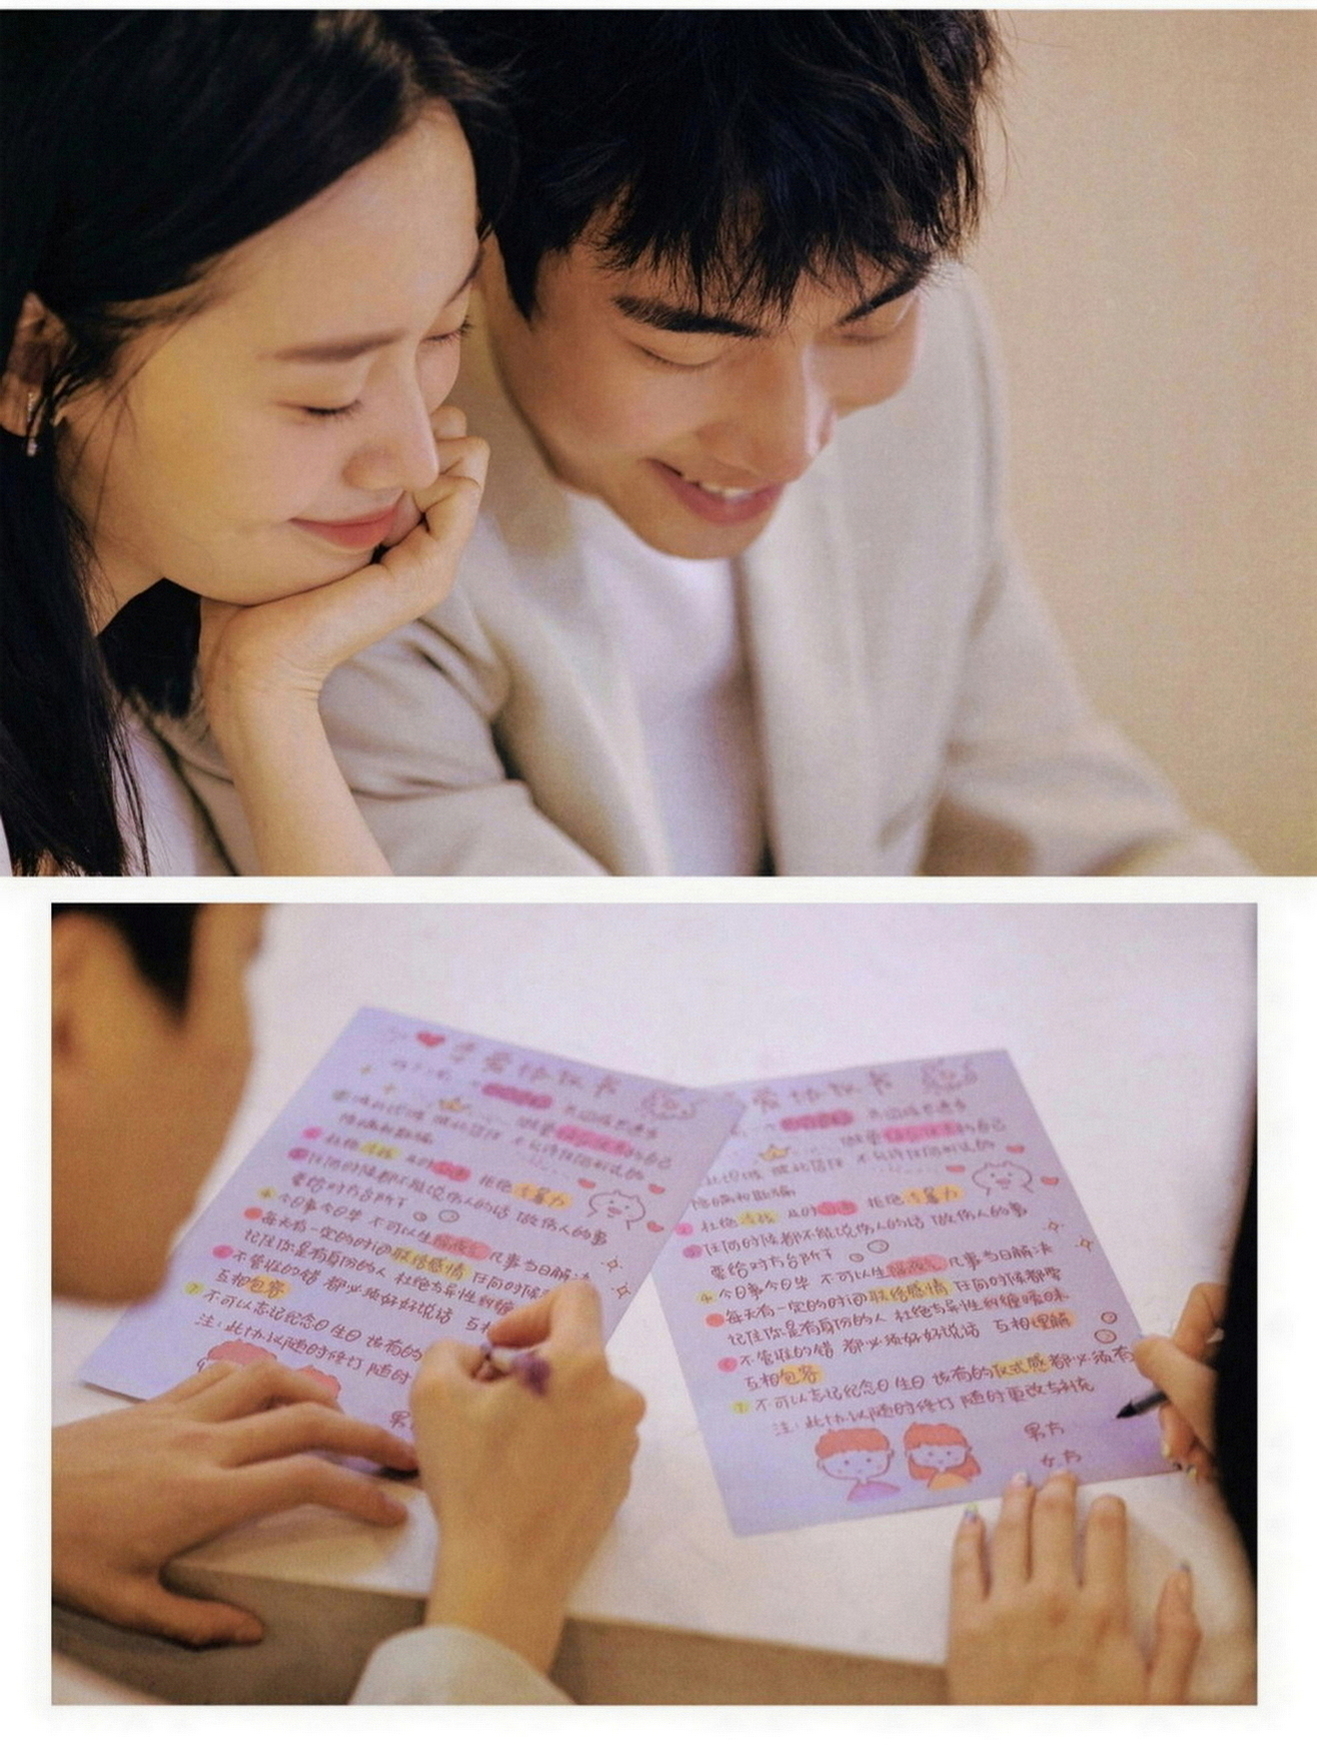 恋爱协议书
杜绝冷战 及时沟通 拒绝冷暴力
任何时候都不能说伤人的话 做伤人的事
要给对方台阶下
今日事今日毕 不可以生隔夜气 凡事当日解决
每天有一定的时间联络感情 任何时候
记住你是有身份的人 杜绝与异性纠缠
不管谁的错 都必须好好说话 互相
互相包容
不可以忘记纪念日生日 该有的
注:此协议随时修订 随时
男
爱协议书
杜绝冷战 及时沟通 拒绝冷暴力
任何时候都不能说伤人的话 做伤人的事
要给对方台阶下
今日事今日毕 不可以生隔夜气 凡事当日解决
每天有一定的时间联络感情 任何时候都要
记住你是有身份的人 杜绝与异性纠缠暧昧
不管谁的错 都必须好好说话 互相理解
互相包容
不可以忘记纪念日生日 该有的仪式感都必须有
注:此协议随时修订 随时更改与补充
男方
女方